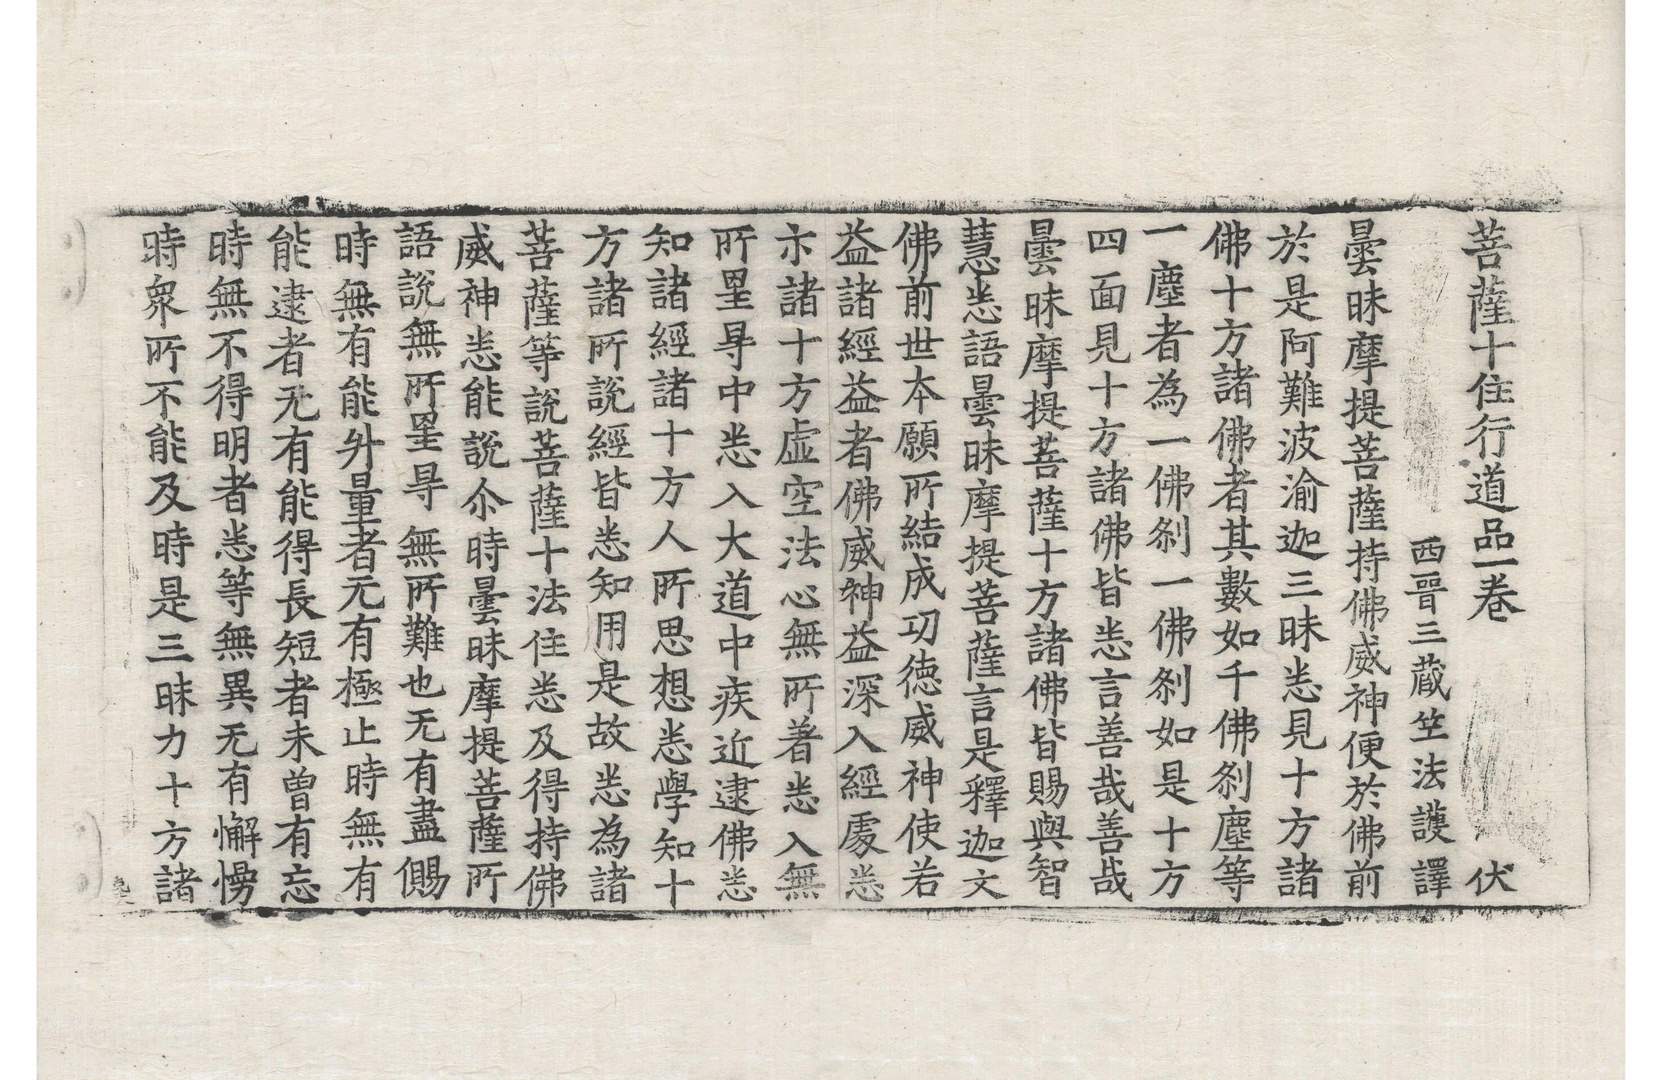 菩薩十住行道品一卷 伏
西晉三藏竺法護譯
曇昧摩提菩薩持佛威神便於佛前
於是阿難波渝迦三昧悉見十方諸
佛十方諸佛者其數如千佛刹塵等
一塵者為一佛刹一佛刹如是十方
四面見十方諸佛皆悉言善哉善哉
曇昧摩提菩薩十方諸佛皆賜與智
慧悉語曇昧摩提菩薩言是釋迦文
佛前世本願所結成功德威神使若
益諸經益益者佛威神益深入經處悉
示諸十方虛空法心無所著悉入無
所罣㝵中悉入大道中疾近逮佛悉
知諸經諸十方人所思想悉學知十
方諸所說經皆悉知用是故悉為諸
菩薩等說菩薩十法住悉及得持佛
威神悉能說尒時曇昧摩提菩薩所
語說無所罣㝵無所難也无有盡儩
時無有能升量者无有極止時無有
能逮者无有能得長短者未曾有忘
時無不得明者悉等無異无有懈慢
時衆所不能及時是三昧力十方諸